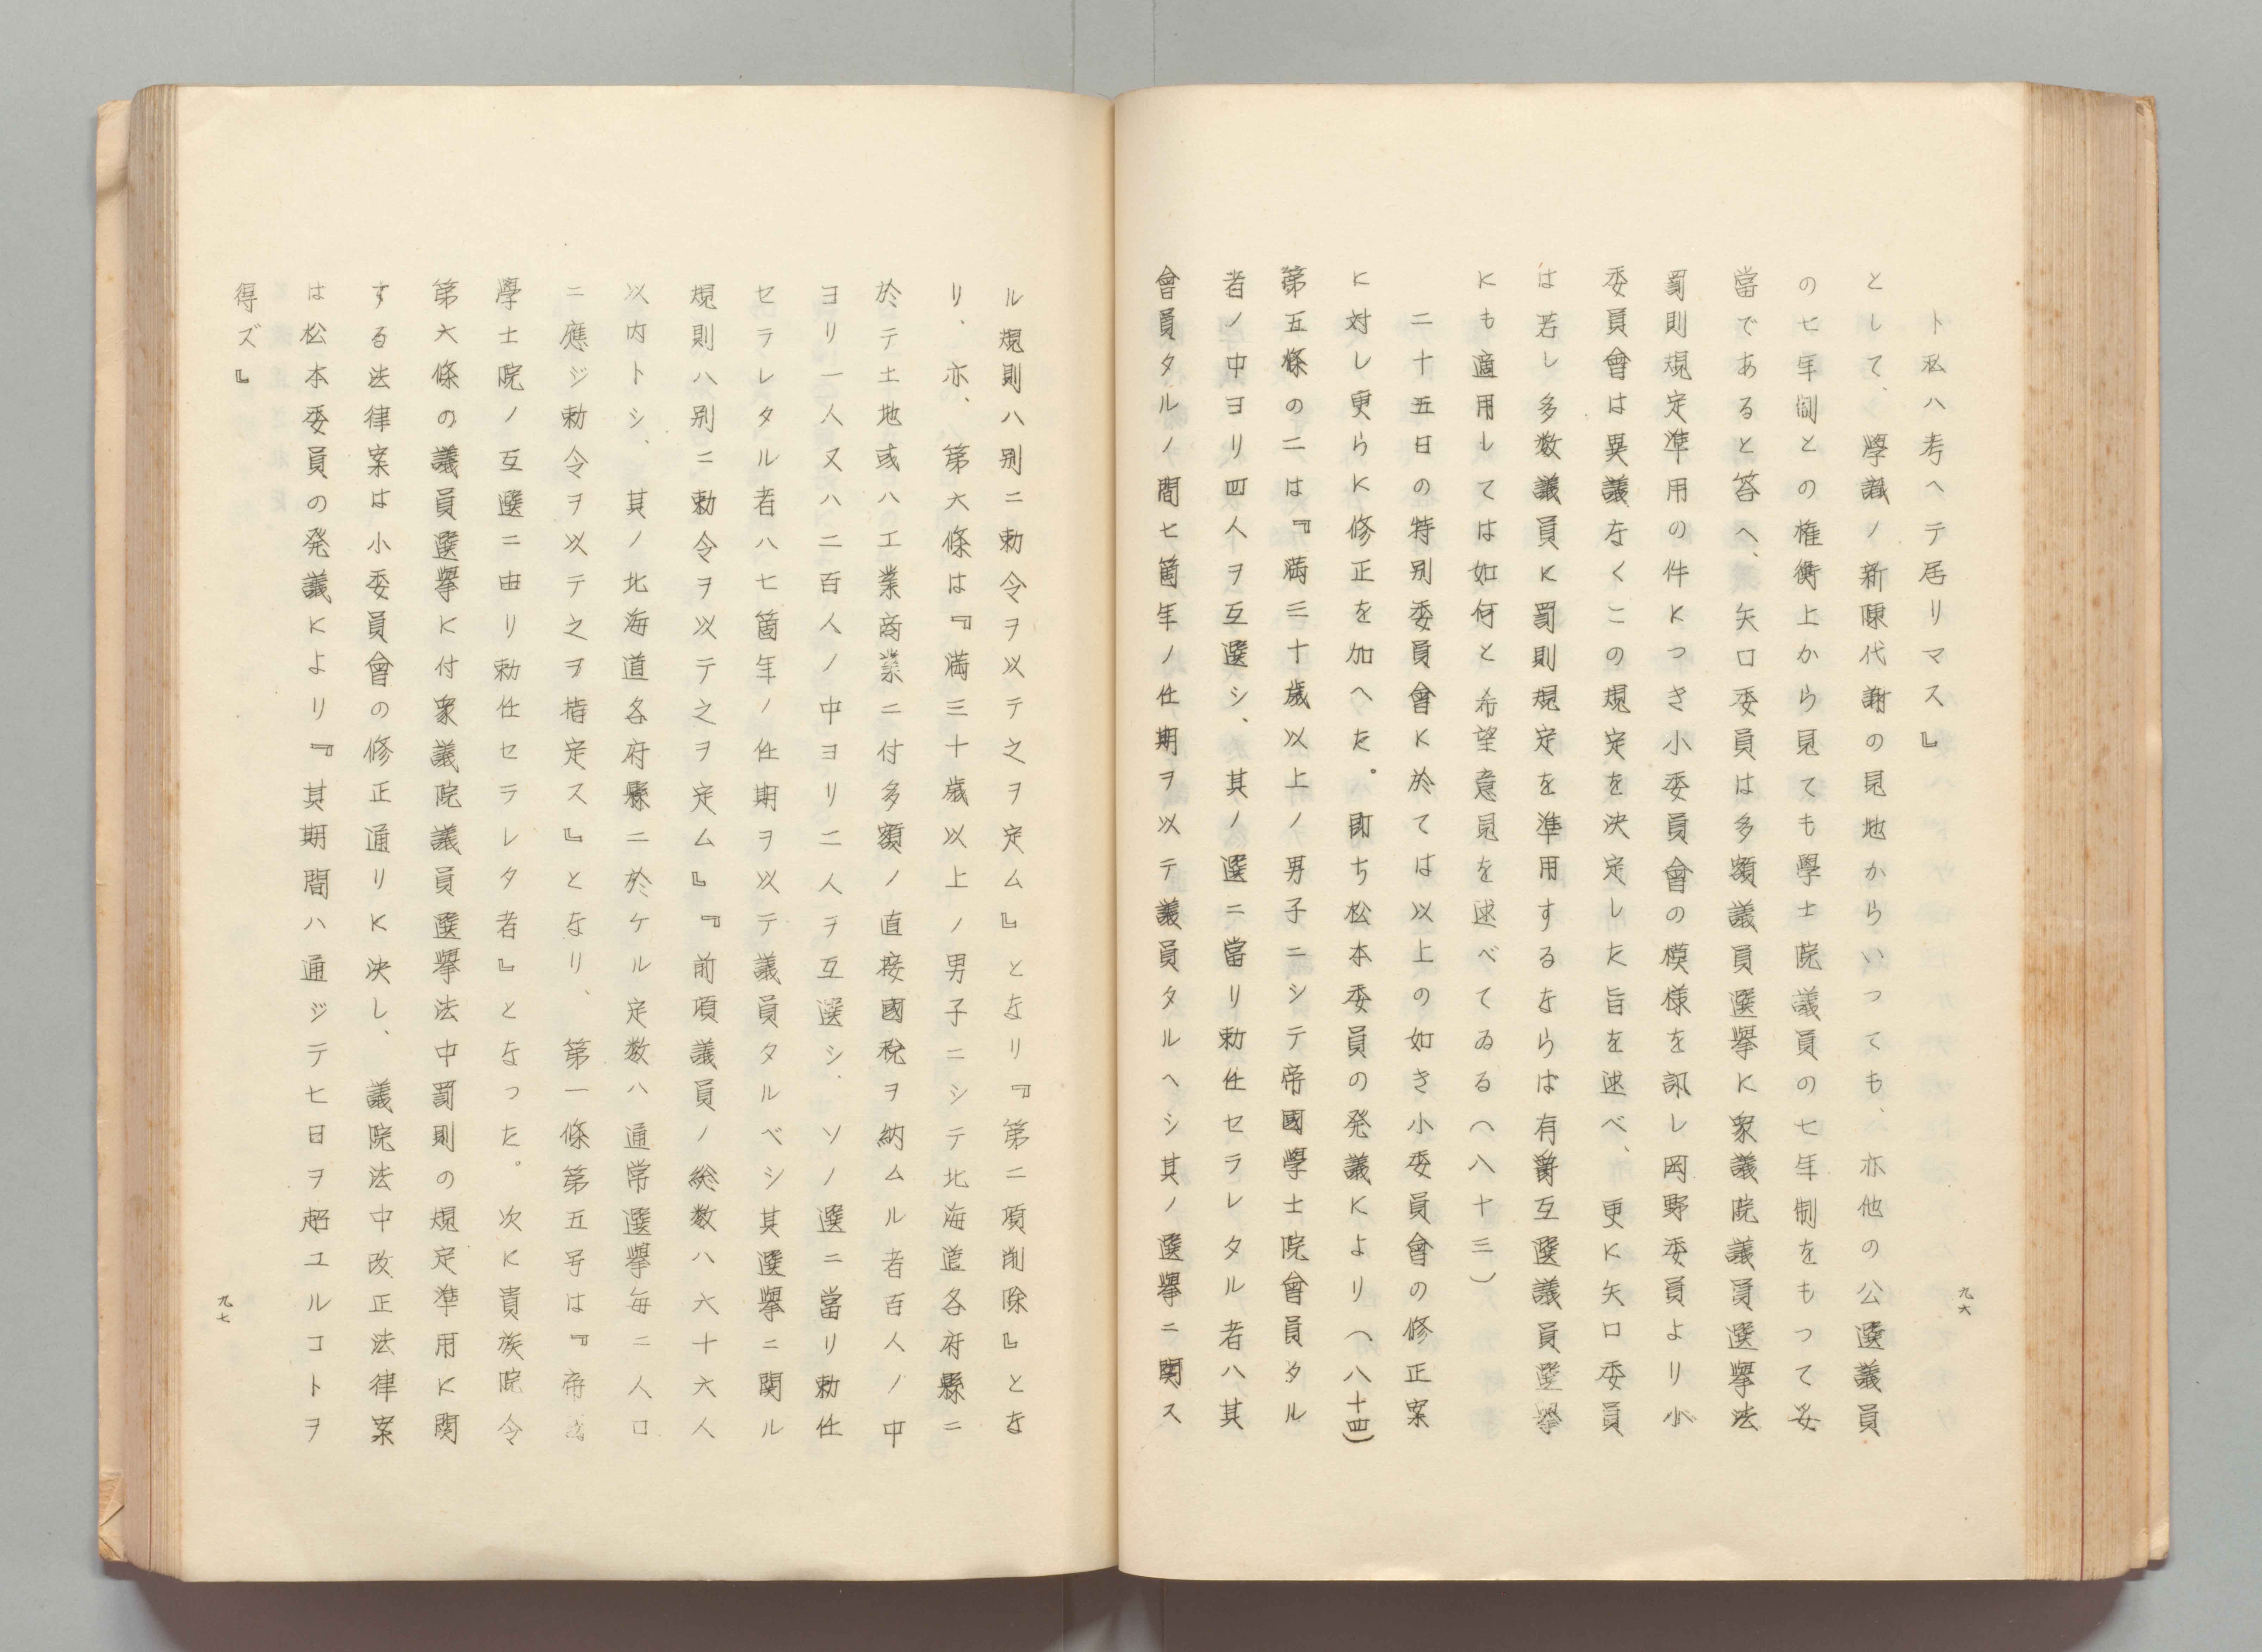 ト私ハ考ヘテ居リマス』
として、學議ノ新陳代謝の見地からいつても、亦他の公選議員
の七年制との権衡上から見ても學士院議員の七年制をもつて妥
當であると答へ、矢口委員は多額議員選擧に衆議院議員選擧法
罰則規定準用の件につき小委員會の模様を訊し岡野委員より小
委員會は異議なくこの規定を決定した旨を述べ、更に矢口委員
は若し多数議員に罰則規定を準用するならは有爵互選議員選擧
にも適用しては如何と希望意見を述べてゐる（八十三）
二十五日の特別委員會に於ては以上の如き小委員會の修正案
に対し更らに修正を加へた。即ち松本委員の発議により（八十四）
第五條の二は『満三十歳以上ノ男子ニシテ帝國學士院會員タル
者ノ中ヨリ四人ヲ互選シ、其ノ選ニ當リ勅任セラレタル者ハ其
會員タルノ間七箇年ノ任期ヲ以テ議員タルヘシ其ノ選擧ニ関ス
九六
ル規則ハ別ニ勅令ヲ以テ之ヲ定ム』となり『第二項削除』とな
リ、亦、第六條は『満三十歳以上ノ男子ニシテ北海道各府縣ニ
於テ土地或ハ工業商業ニ付多額ノ直接國税ヲ納ムル者百人ノ中
ヨリ一人又ハ二百人ノ中ヨリ二人ヲ互選シ、ソノ選ニ當リ勅任
セラレタル者ハ七箇年ノ任期ヲ以テ議員タルベシ其選擧ニ関ル
規則ハ別ニ勅令ヲ以テ之ヲ定ム』『前項議員ノ総数ハ六十六人
以内トシ、其ノ北海道各府縣ニ於ケル定数ハ通常選擧毎ニ人口
ニ應ジ勅令ヲ以テ之ヲ指定ス』となり、第一條第五号は『帝國
學士院ノ互選ニ由リ勅任セラレタ者』となつた。次に貴族院令
第六條の議員選擧に付衆議院議員選擧法中罰則の規定準用に関
する法律案は小委員會の修正通りに決し、議院法中改正法律案
は松本委員の発議により『其期間ハ通ジテ七日ヲ超ユルコトヲ
得ズ』
九七